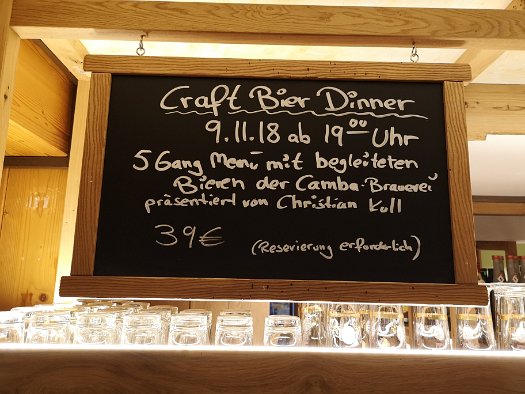 Craft Bier Dinner
9.11.18 ab 19 00 Uhr
5 Gang Menü mit begleiteten
Bieren der Camba-Brauerei
präsentiert von Christian Kull
39€ (Reservierung erforderlich)